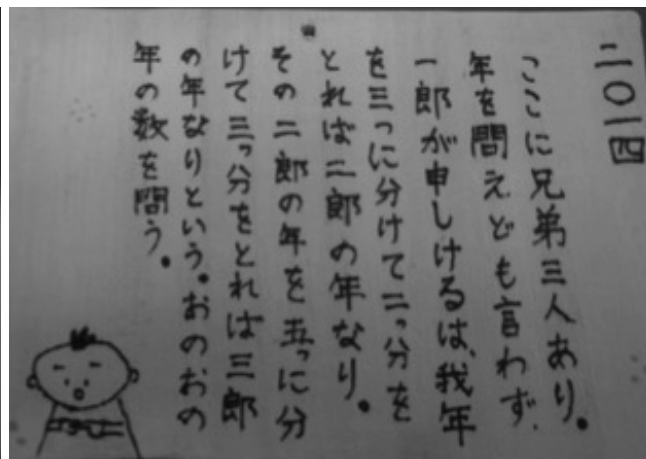 二〇一四
ここに兄弟三人あり。
年を問えども言わず、
一郎が申しけるは、我年
を三つに分けて二つ分を
とれば二郎の年なり。
その二郎の年を五つに分
けて三つ分をとれば三郎
の年なりという。おのおの
年の数を問う。